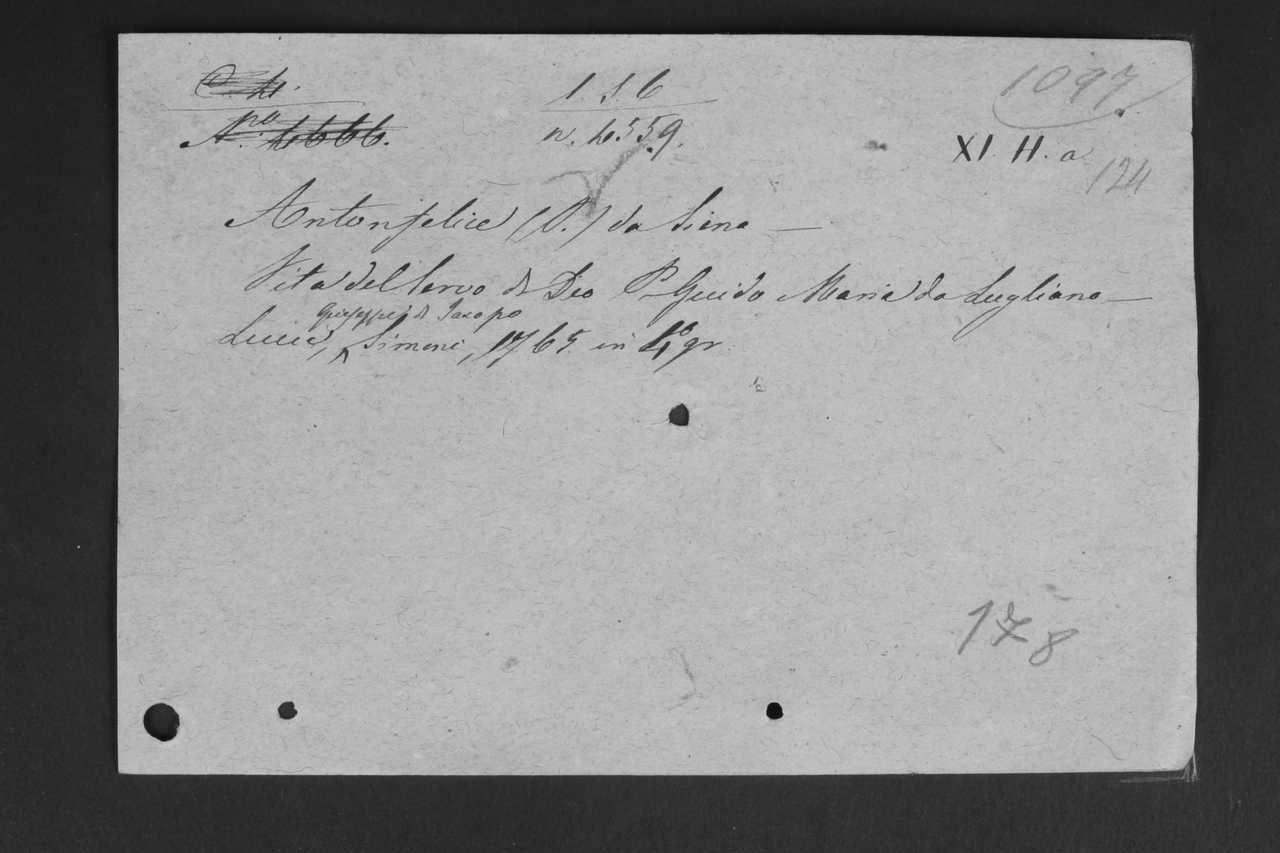 1. S. 6
n. 4559.
1097
XI. H. a
124
Antonfelice (P.) da Siena —
Vita del Servo di Dio P. Guido Maria da Lugliano —
Giuseppe di Jacopo
Lucca, Simoni, 1765 in 4º gr.
178